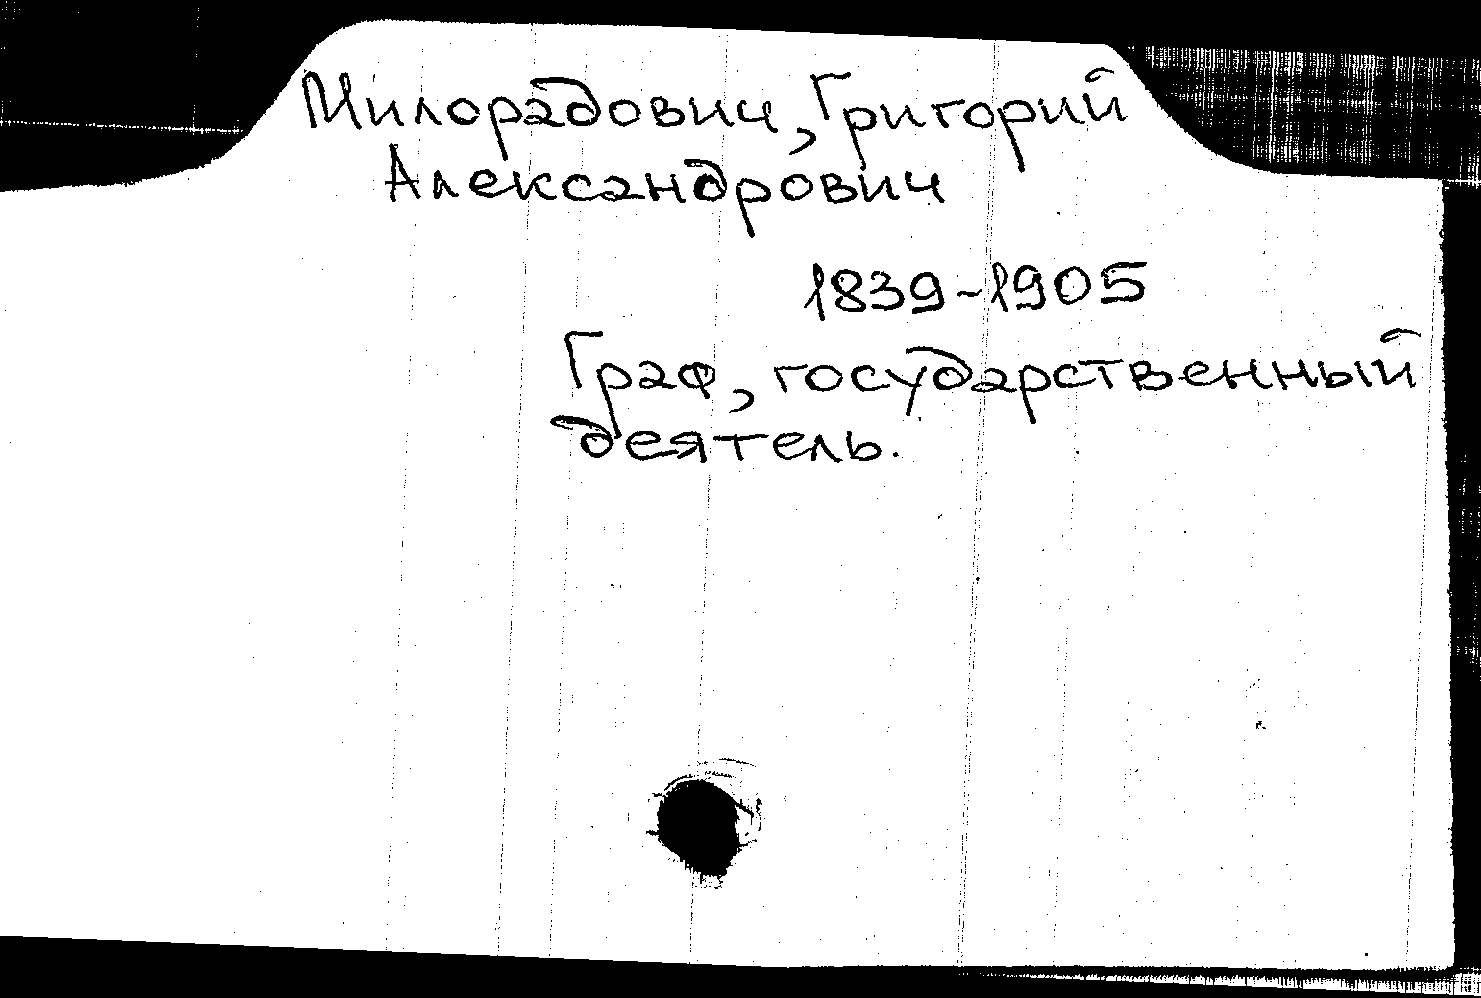 Милорадович, Григорий
Александрович
1839-1905
Граф, государственный
деятель.